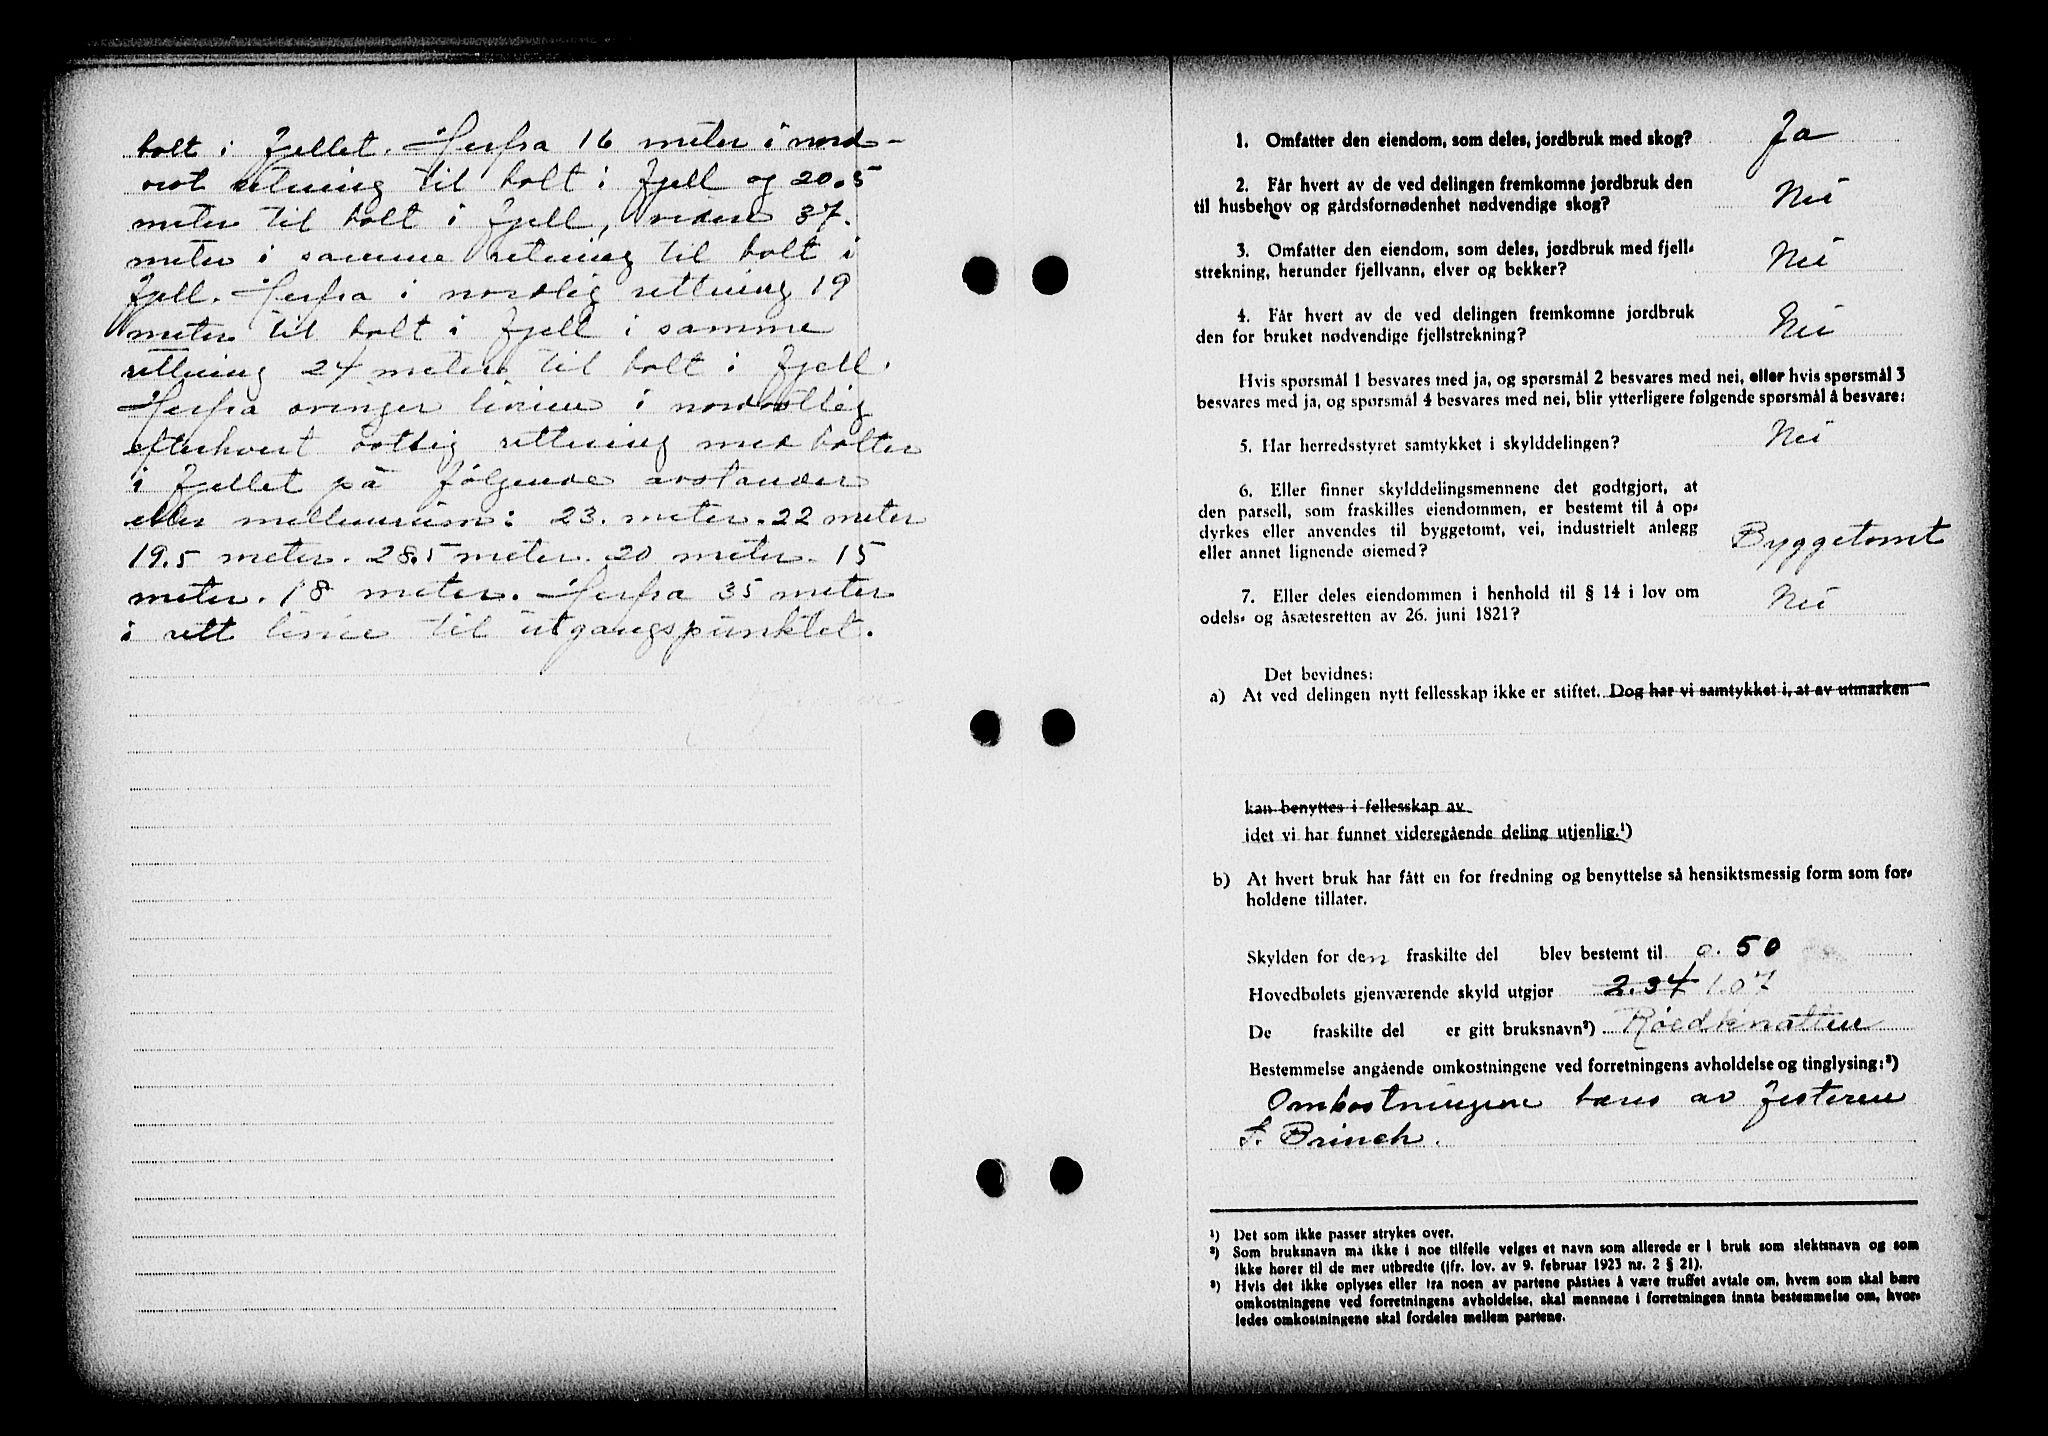 bolt i fjellet. Herfra 16 meter i nord-
ost retning til bolt i fjell og 20.5
meter til bolt i fjell, videre 37.
meter i samme retning til bolt i
fjell. Herfra i nordlig rettning 19
meter til bolt i fjell i samme
rettning 24 meter til bolt i fjell.
Herfra svinger linien i nordostlig
efterhvert ostlig rettning med bolter
i fjellet på følgende avstander
eller mellemrum: 23. meter. 22 meter
19.5 meter. 28.5 meter. 20 meter. 15
meter. 18 meter. Herfra 35 meter
i rett linie til utgangspunktet.
1. Omfatter den eiendom, som deles, jordbruk med skog? Ja
2. Får hvert av de ved delingen fremkomne jordbruk den
til husbehov og gårdsfornødenhet nødvendige skog? Nei
3. Omfatter den eiendom, som deles, jordbruk med fjell-
strekning, herunder fjellvann, elver og bekker? Nei
4. Får hvert av de ved delingen fremkomne jordbruk
den for bruket nødvendige fjellstrekning? Nei
Hvis spørsmål 1 besvares med ja, og spørsmål 2 besvares med nei, eller hvis spørsmål 3
besvares med ja, og spørsmål 4 besvares med nei, blir ytterligere følgende spørsmål å besvare:
5. Har herredsstyret samtykket i skylddelingen? Nei
6. Eller finner skylddelingsmennene det godtgjort, at
den parsell, som fraskilles eiendommen, er bestemt til å op-
dyrkes eller anvendes til byggetomt, vei, industrielt anlegg
eller annet lignende øiemed? Byggetomt
7. Eller deles eiendommen i henhold til § 14 i lov om
odels- og åsætesretten av 26. juni 1821? Nei
Det bevidnes:
a) At ved delingen nytt fellesskap ikke er stiftet. Dog har vi samtykket i, at av utmarken
kan benyttes i fellesskap av
idet vi har funnet videregående deling utjenlig.¹)
b) At hvert bruk har fått en for fredning og benyttelse så hensiktsmessig form som for-
holdene tillater.
Skylden for den fraskilte del blev bestemt til 0.50
Hovedbølets gjenværende skyld utgjør 2.34 1.07
De fraskilte del er gitt bruksnavn²) Røedknatten
Bestemmelse angående omkostningene ved forretningens avholdelse og tinglysing:³)
Omkostningene bæres av festeren
F. Brinch.
¹) Det som ikke passer strykes over.
²) Som bruksnavn må ikke i noe tilfelle velges et navn som allerede er i bruk som slektsnavn og som
ikke hører til de mer utbredte (jfr. lov. av 9. februar 1923 nr. 2 § 21).
³) Hvis det ikke oplyses eller fra noen av partene påståes å være truffet avtale om, hvem som skal bære
omkostningene ved forretningens avholdelse, skal mennene i forretningen innta bestemmelse om, hvor-
ledes omkostningene skal fordeles mellem partene.